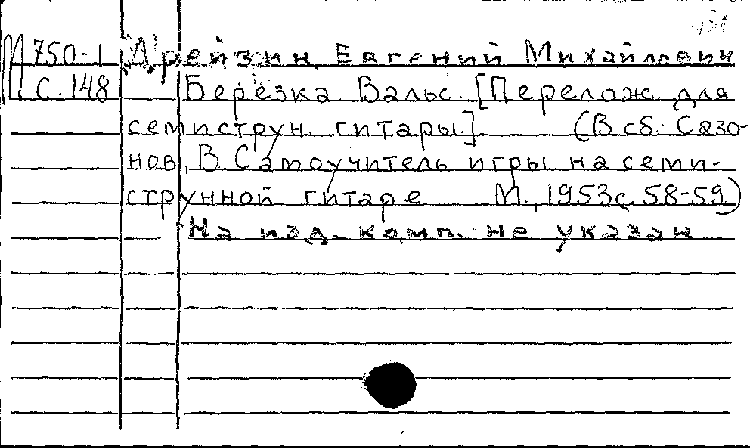 М 750-1 Дрейзин Евгений Михайлович
с. 148 Берёзка Вальс. [Перелож. для
семиструн. гитары] (В сб. Сазо-
нов, В. Самоучитель игры на семи-
струнной гитаре М., 1953 с. 58-59)
На изд. комп. не указан